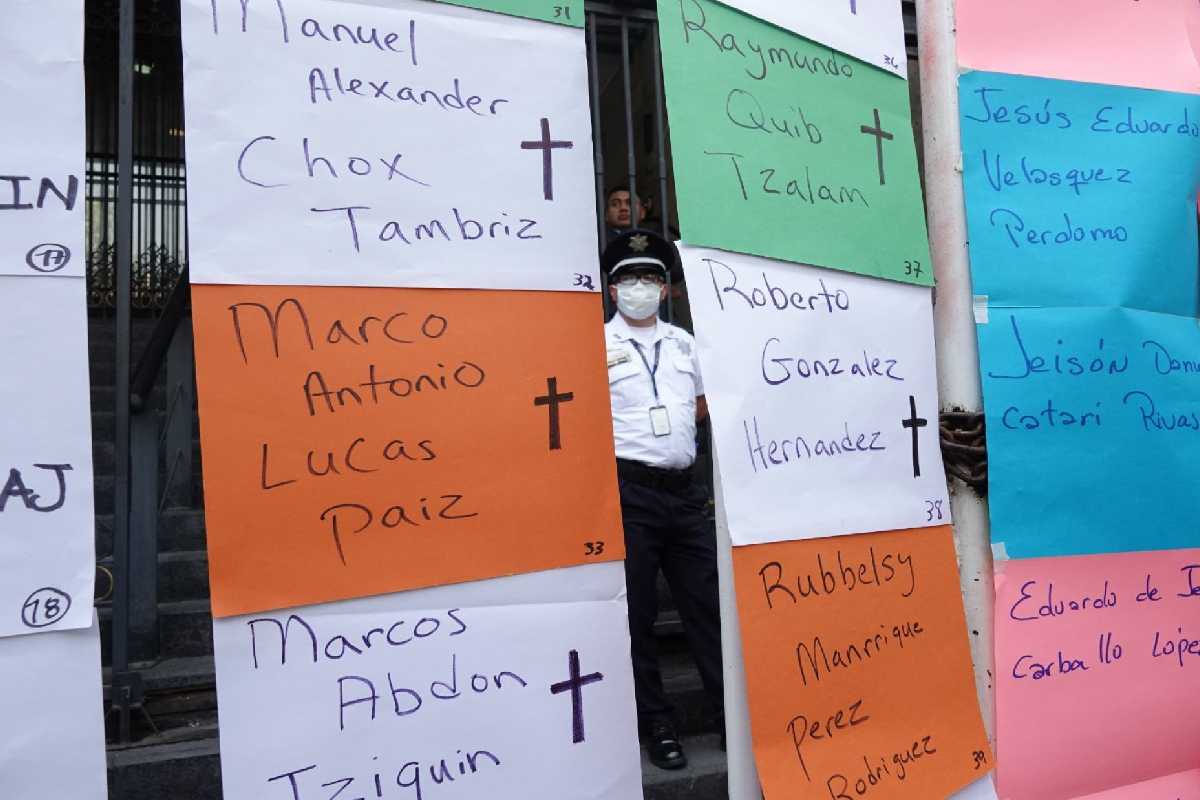 IN
17
AJ
18
31
Manuel
Alexander
Chox
Tambriz
32
Marco
Antonio
Lucas
Paiz
33
Marcos
Abdon
Tziquin
36
Raymundo
Quib
Tzalam
37
Roberto
Gonzalez
Hernandez
38
Rubbelsy
Manrrique
Perez
Rodriguez
39
Jesús Eduardo
Velasquez
Perdomo
Jeisón
Catarí Rivas
Eduardo de
Carballo López